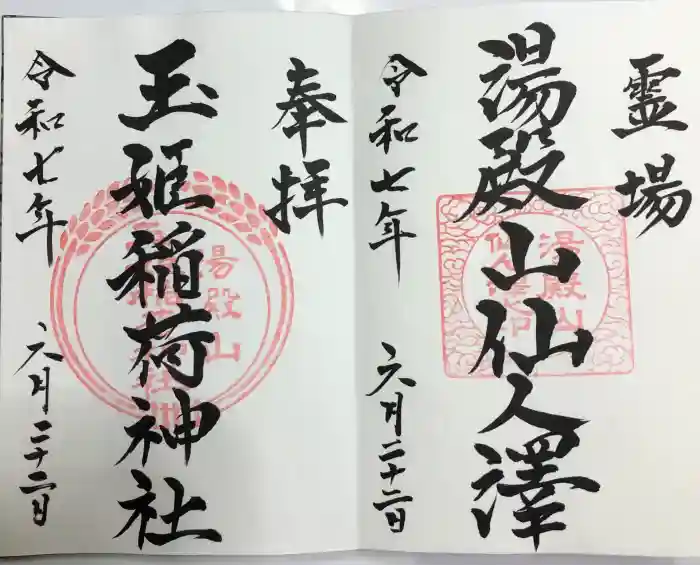 霊場
湯殿山仙人澤
令和七年 六月二十二日
湯殿山
奉拝
玉姫稲荷神社
令和七年 六月二十二日
湯殿山